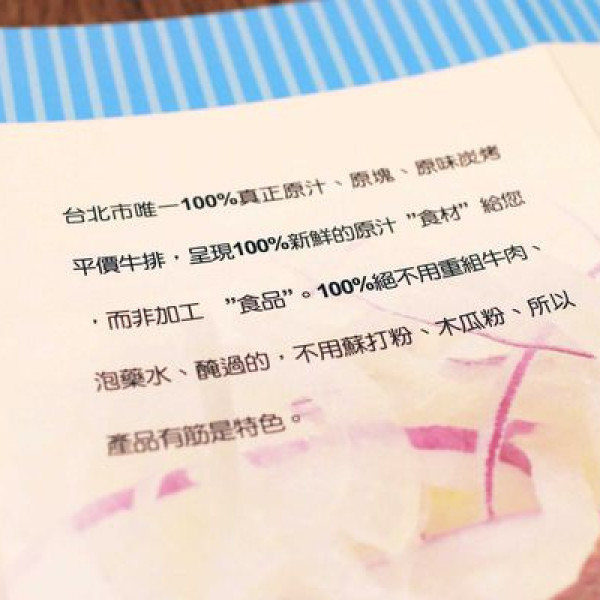 台北市唯一100%真正原汁、原塊、原味炭烤
平價牛排，呈現100%新鮮的原汁 ”食材” 給您
，而非加工 ”食品”。100%絕不用重組牛肉、
泡藥水、醃過的，不用蘇打粉、木瓜粉、所以
產品有筋是特色。